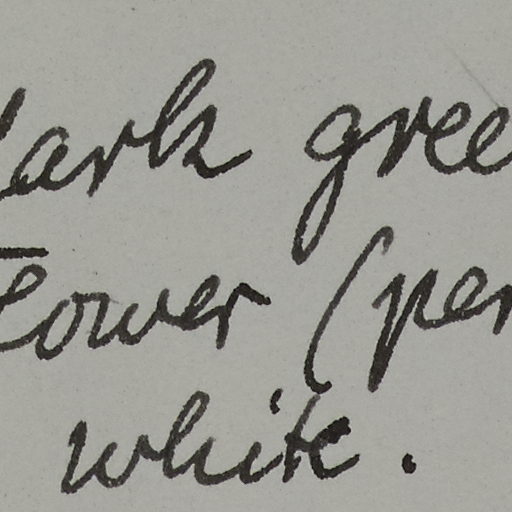 dark gree
lower (per
white.